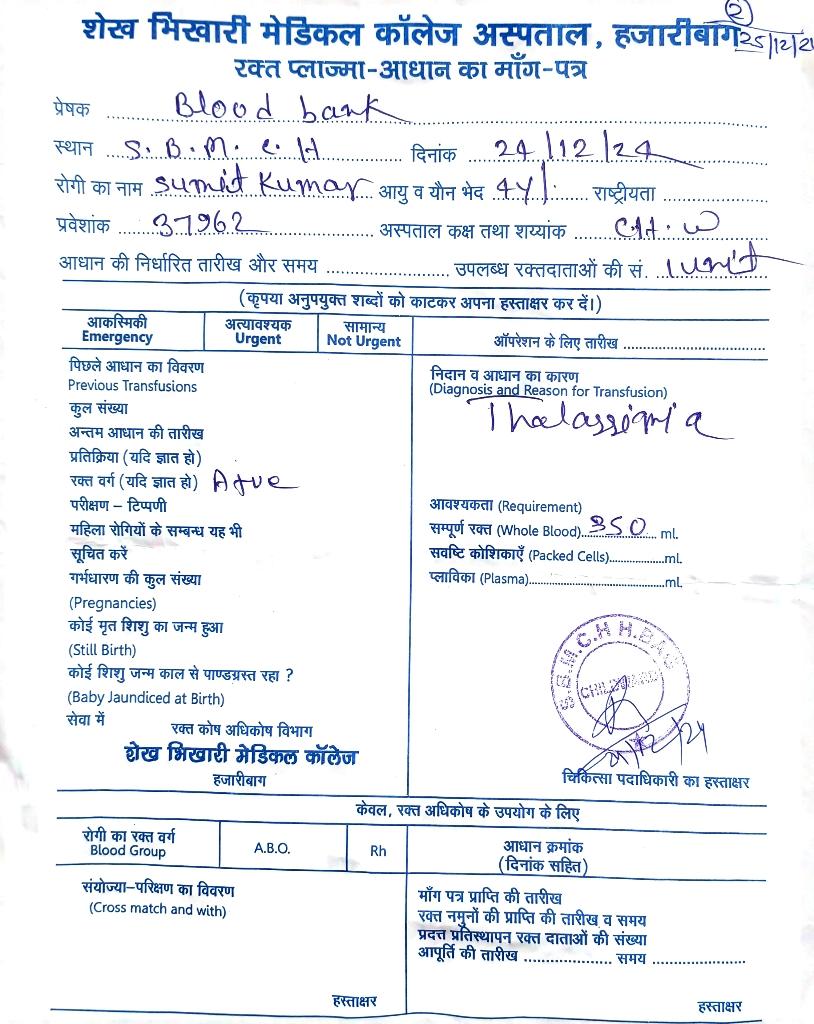 2
25/12/2
शेख भिखारी मेडिकल कॉलेज अस्पताल, हजारीबाग
रक्त प्लाज्मा-आधान का माँग-पत्र
प्रेषक Blood bank
स्थान S.B.M.C.H दिनांक 24/12/24
रोगी का नाम Sumit Kumar आयु व यौन भेद 4Y/. राष्ट्रीयता
प्रवेशांक 37962 अस्पताल कक्ष तथा शय्यांक CH.W
आधान की निर्धारित तारीख और समय उपलब्ध रक्तदाताओं की सं. 1 unit
(कृपया अनुपयुक्त शब्दों को काटकर अपना हस्ताक्षर कर दें।)
आकस्मिकी अत्यावश्यक सामान्य
Emergency Urgent Not Urgent
ऑपरेशन के लिए तारीख
पिछले आधान का विवरण
Previous Transfusions
कुल संख्या
अन्तम आधान की तारीख
प्रतिक्रिया (यदि ज्ञात हो)
रक्त वर्ग (यदि ज्ञात हो) A+ve
परीक्षण – टिप्पणी
महिला रोगियों के सम्बन्ध यह भी
सूचित करें
गर्भधारण की कुल संख्या
(Pregnancies)
कोई मृत शिशु का जन्म हुआ
(Still Birth)
कोई शिशु जन्म काल से पाण्डग्रस्त रहा ?
(Baby Jaundiced at Birth)
सेवा में
रक्त कोष अधिकोष विभाग
शेख भिखारी मेडिकल कॉलेज
हजारीबाग
निदान व आधान का कारण
(Diagnosis and Reason for Transfusion)
Thalassimia
आवश्यकता (Requirement)
सम्पूर्ण रक्त (Whole Blood) 350 ml.
सवष्टि कोशिकाएँ (Packed Cells) ml.
प्लाविका (Plasma) ml.
S.B.M.C.H H.BAG
CHILD WARD
24/12/24
चिकित्सा पदाधिकारी का हस्ताक्षर
केवल, रक्त अधिकोष के उपयोग के लिए
रोगी का रक्त वर्ग
Blood Group
A.B.O.
Rh
आधान क्रमांक
(दिनांक सहित)
संयोज्या-परिक्षण का विवरण
(Cross match and with)
हस्ताक्षर
माँग पत्र प्राप्ति की तारीख
रक्त नमुनों की प्राप्ति की तारीख व समय
प्रदत्त प्रतिस्थापन रक्त दाताओं की संख्या
आपूर्ति की तारीख समय
हस्ताक्षर